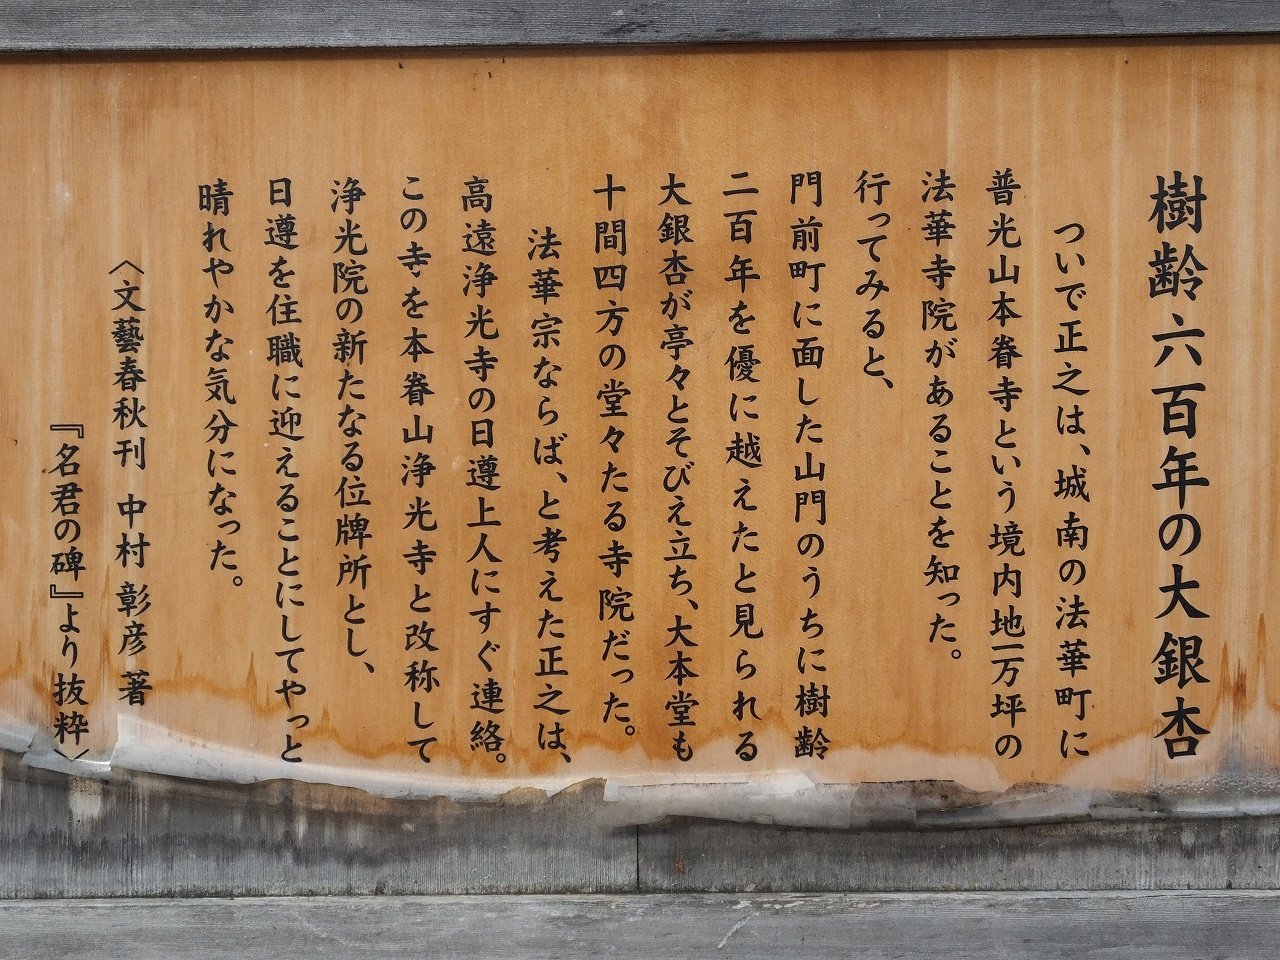 樹齢六百年の大銀杏
ついで正之は、城南の法華町に
普光山本眷寺という境内地一万坪の
法華寺院があることを知った。
行ってみると、
門前町に面した山門のうちに樹齢
二百年を優に越えたと見られる
大銀杏が亭々とそびえ立ち、大本堂も
十間四方の堂々たる寺院だった。
法華宗ならば、と考えた正之は、
高遠浄光寺の日遵上人にすぐ連絡。
この寺を本眷山浄光寺と改称して
浄光院の新たなる位牌所とし、
日遵を住職に迎えることにしてやっと
晴れやかな気分になった。
〈文藝春秋刊 中村彰彦 著
『名君の碑』より抜粋〉